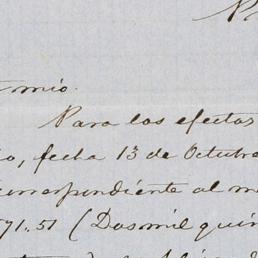 mio.
Para los efectos
fecha 13 de Octubre
correspondiente al m
71.51 (Dosmil quin